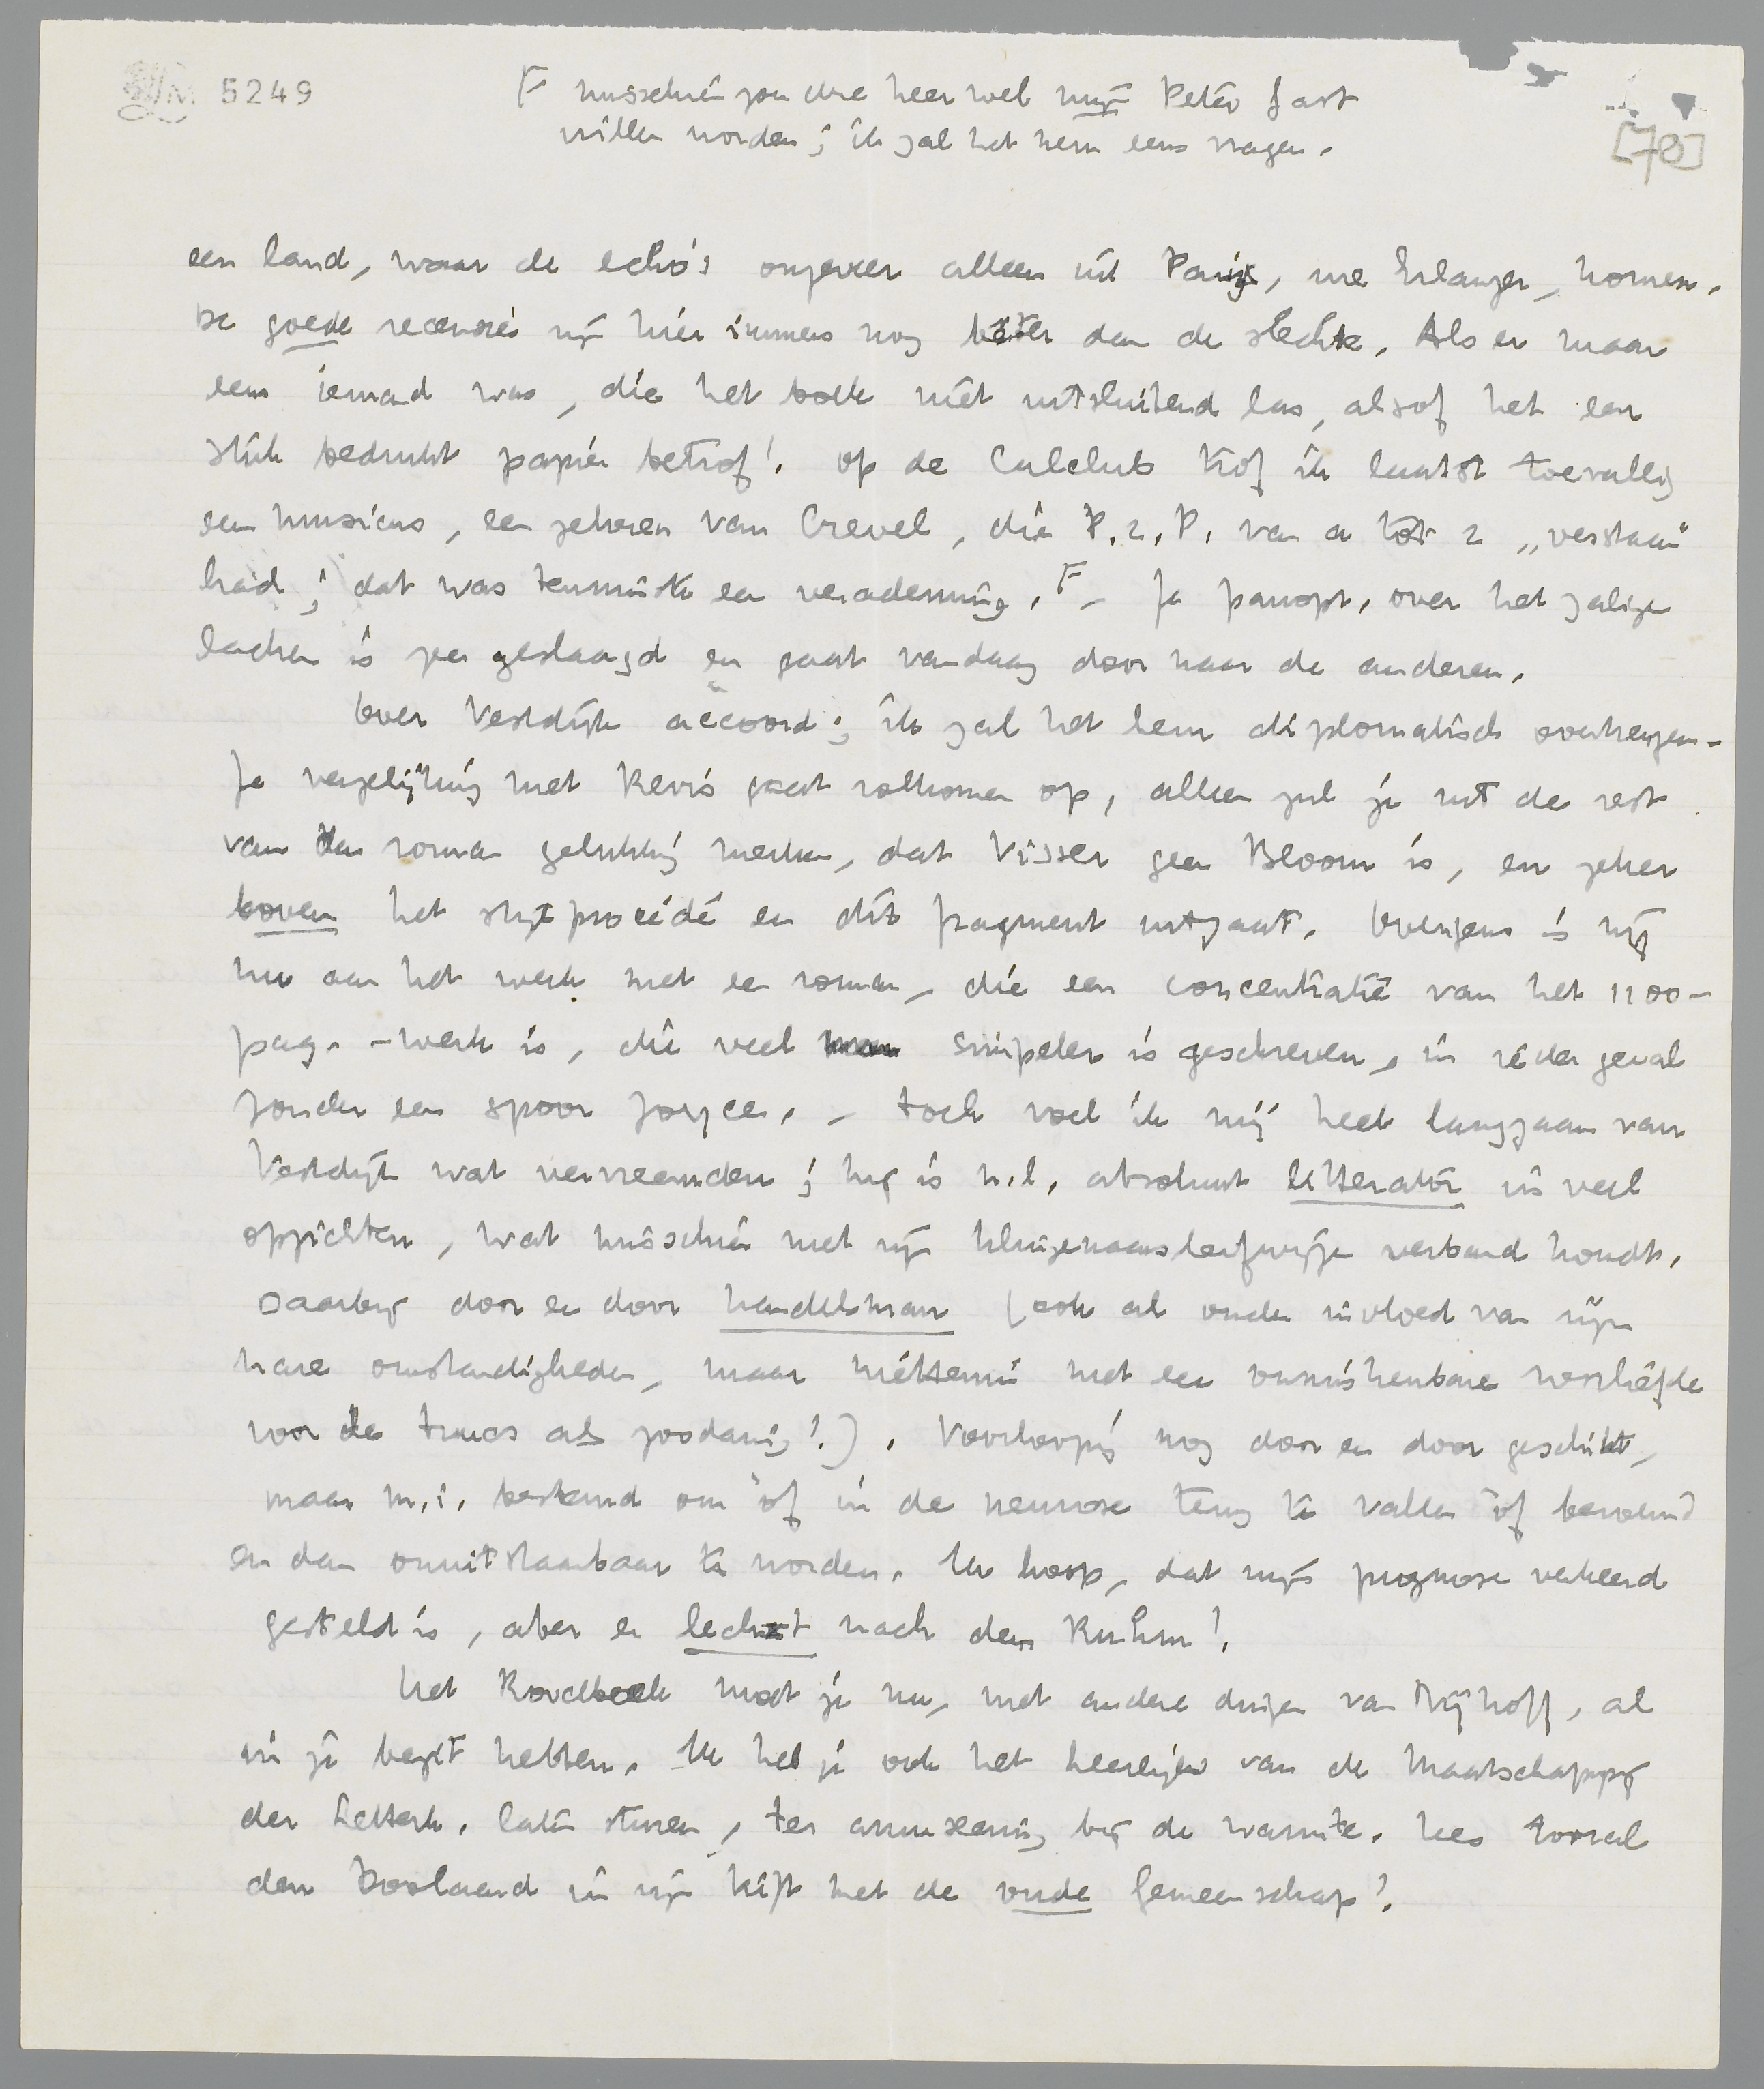 5249
F misschien zou die heer wel mijn Peter Gast
willen worden; ik zal het hem eens vragen.
[78]
een land, waar de echo's ongeveer alleen uit Parijs, via Erlanger, komen.
De goede recensies zijn hier immers nog bêter dan de slechte. Als er maar
eens iemand was, die het boek niet uitsluitend las, alsof het een
stuk bedrukt papier betrof! Op de Culclub trof ik laatst toevallig
een musicus, een zekeren van Crevel, die P.z.P. van a tot z „verstaan"
had; dat was tenminste een verademing. F – Je panopt. over het zalige
lachen is zeer geslaagd en gaat vandaag door naar de anderen.
Over Vestdijk accoord; ik zal het hem diplomatisch overbrengen.
Je vergelijking met Revis gaat volkomen op, alleen zul je uit de rest
van den roman gelukkig merken, dat Visser geen Bloom is, en zeker
boven het stijlprocédé en dit fragment uitgaat. Overigens is hij
nu aan het werk met een roman, die een concentratie van het 1100-
pag.-werk is, die veel simpeler is geschreven, in ieder geval
zonder een spoor Joyce. – Toch voel ik mij heel langzaam van
Vestdijk wat vervreemden; hij is n.l. absoluut litterator in veel
opzichten, wat misschien met zijn kluizenaarsleefwijze verband houdt.
Daarbij door en door handelsman (ook al onder invloed van zijn
nare omstandigheden, maar niettemin met een onmiskenbare voorliefde
voor de trucs als zoodanig!). Voorloopig nog door en door geschikt,
maar m.i. bestemd om òf in de neurose terug te vallen òf beroemd
en dan onuitstaanbaar te worden. Ik hoop, dat mijn prognose verkeerd
gesteld is, aber er lechzt nach dem Ruhm!
Het Roodboek moet je nu, met andere dingen van Nijhoff, al
in je bezit hebben. Ik heb je ook het keerlijw van de Maatschappij
der Letterk. laten sturen, ter amuseering bij de warmte. Lees vooral
den Koolaard in zijn kift met de oude Gemeenschap!